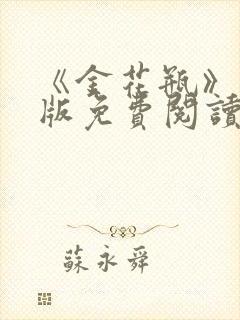 《金花瓶》
版免費閱讀
蘇永舜